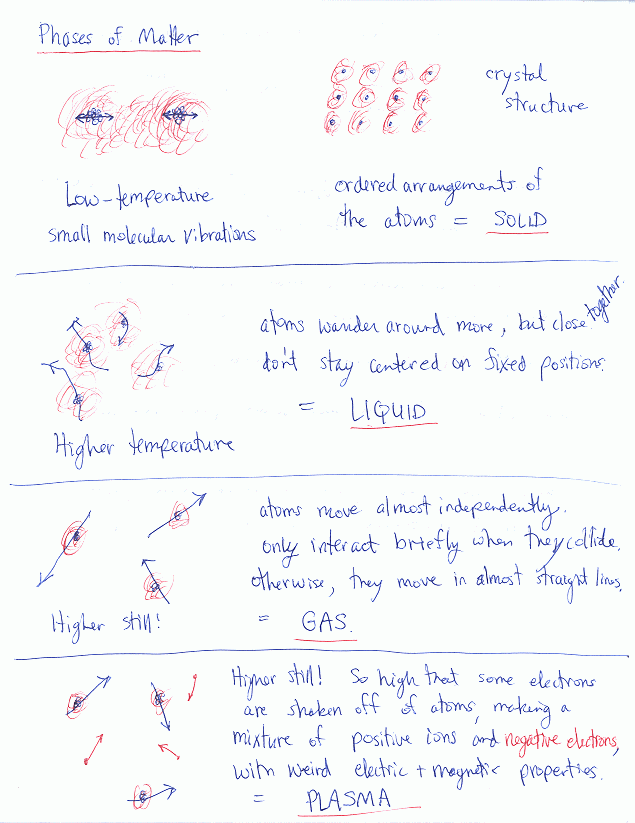 Phases of Matter
crystal
structure
Low-temperature
small molecular vibrations
ordered arrangements of
the atoms = SOLID
atoms wander around more, but close together.
don't stay centered on fixed positions.
= LIQUID
Higher temperature
atoms move almost independently.
only interact briefly when they collide.
otherwise, they move in almost straight lines.
= GAS.
Higher still!
Higher still! So high that some electrons
are shaken off of atoms, making a
mixture of positive ions and negative electrons,
with weird electric + magnetic properties.
= PLASMA